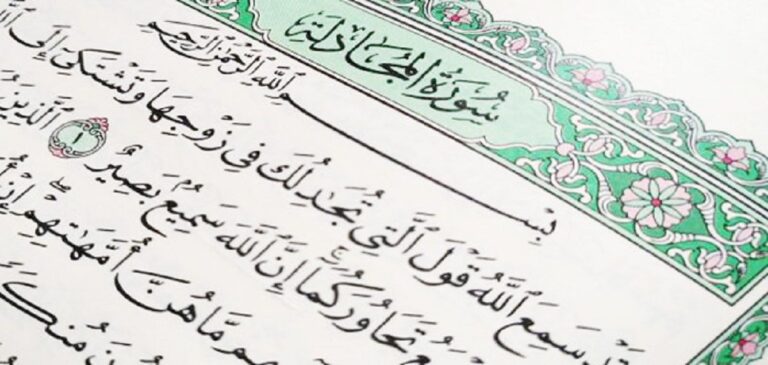 سُورَةُ المُجَادلَة
بِسْمِ ٱللَّهِ ٱلرَّحْمَٰنِ ٱلرَّحِيمِ
سَمِعَ ٱللَّهُ قَوْلَ ٱلَّتِي تُجَٰدِلُكَ فِي زَوْجِهَا وَتَشْتَكِيٓ إِلَى
تَحَاوُرَكُمَآ إِنَّ ٱللَّهَ سَمِيعٌۢ بَصِيرٌ ١ ٱلَّذِينَ
مَّا هُنَّ أُمَّهَٰتِهِمْ إِنْ